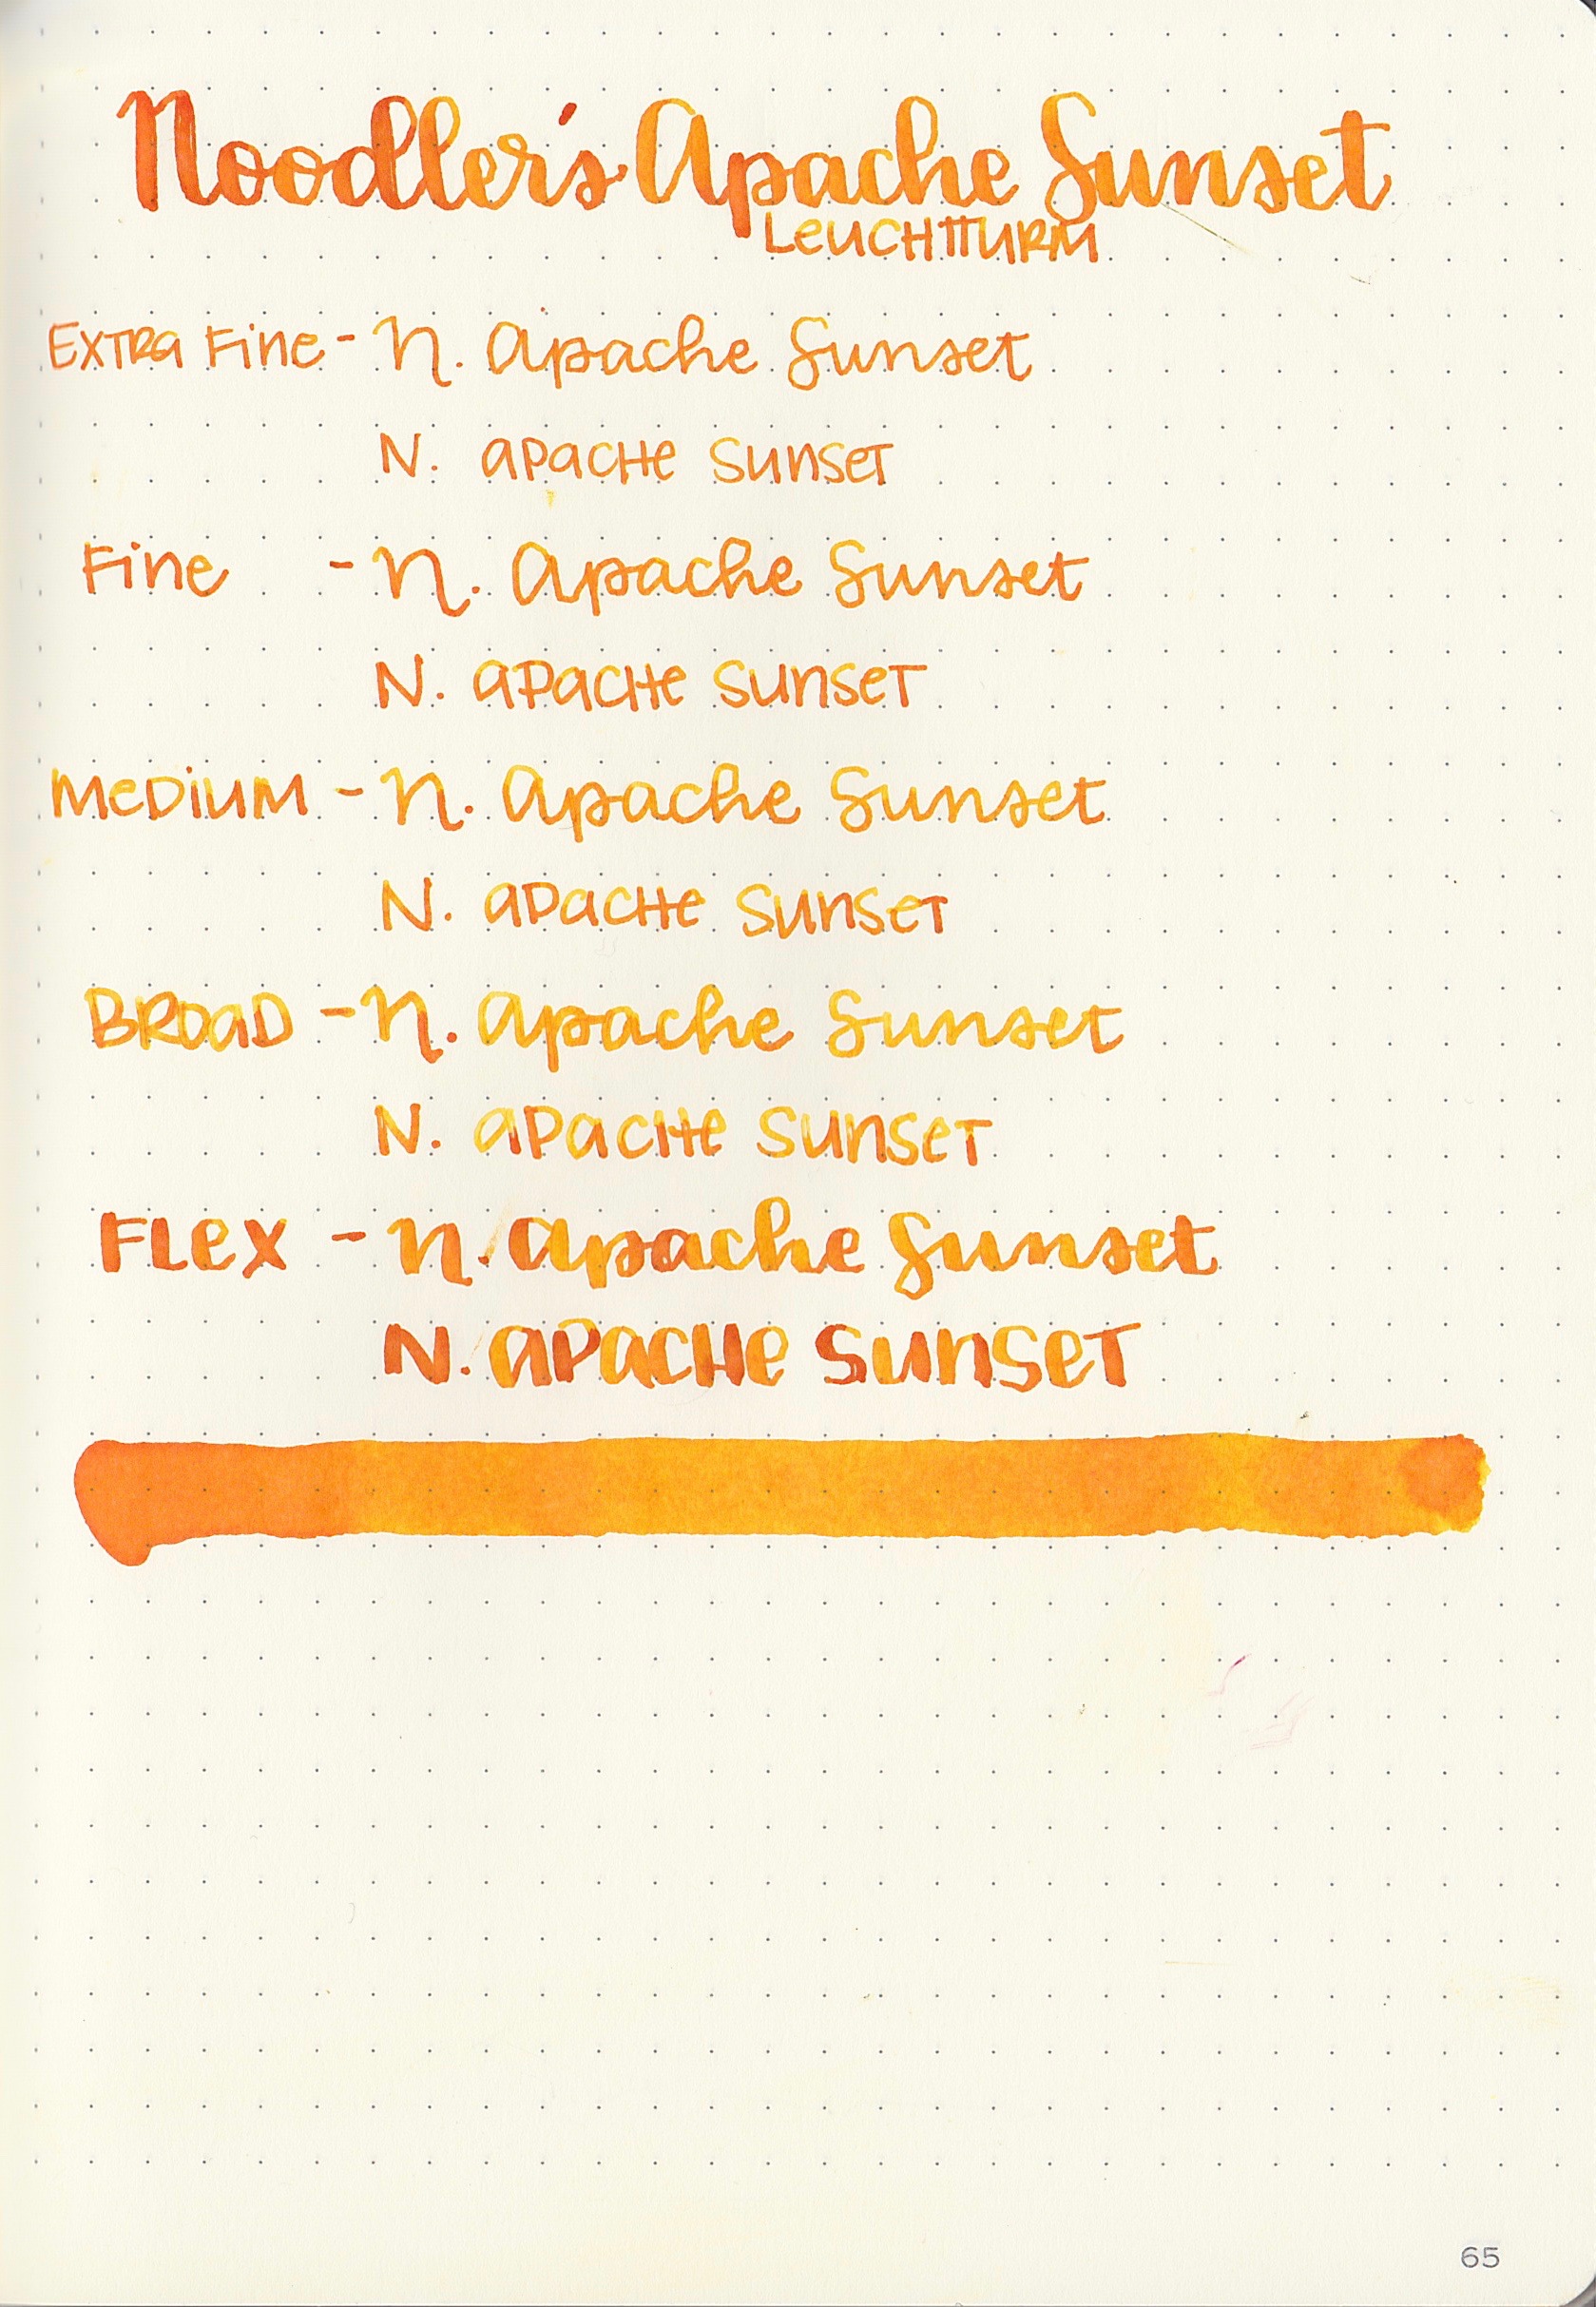 Noodler's Apache Sunset
Leuchtturm
Extra Fine - N. Apache Sunset
N. Apache Sunset
Fine - N. Apache Sunset
N. Apache Sunset
Medium - N. Apache Sunset
N. Apache Sunset
Broad - N. Apache Sunset
N. Apache Sunset
Flex - N. Apache Sunset
N. Apache Sunset
65